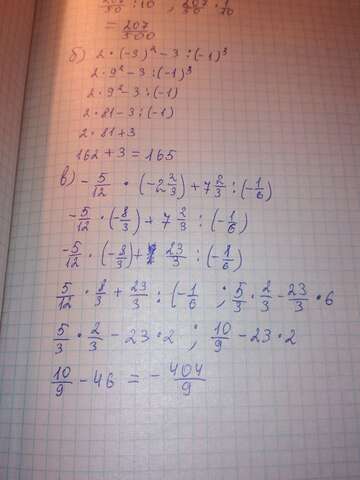 207/50 : 10 , 207/50 · 1/10
= 207/500
б) 2·(-3)² - 3 : (-1)³
2·9² - 3 : (-1)³
2·9² - 3 : (-1)
2·81 - 3 : (-1)
2·81 + 3
162 + 3 = 165
в) - 5/12 · (-2 2/3) + 7 2/3 : (-1/6)
- 5/12 · (-8/3) + 7 2/3 : (-1/6)
- 5/12 · (-8/3) + 23/3 : (-1/6)
5/12 · 8/3 + 23/3 : (-1/6 ; 5/3 · 2/3 - 23/3 · 6
5/3 · 2/3 - 23·2 ; 10/9 - 23·2
10/9 - 46 = - 404/9